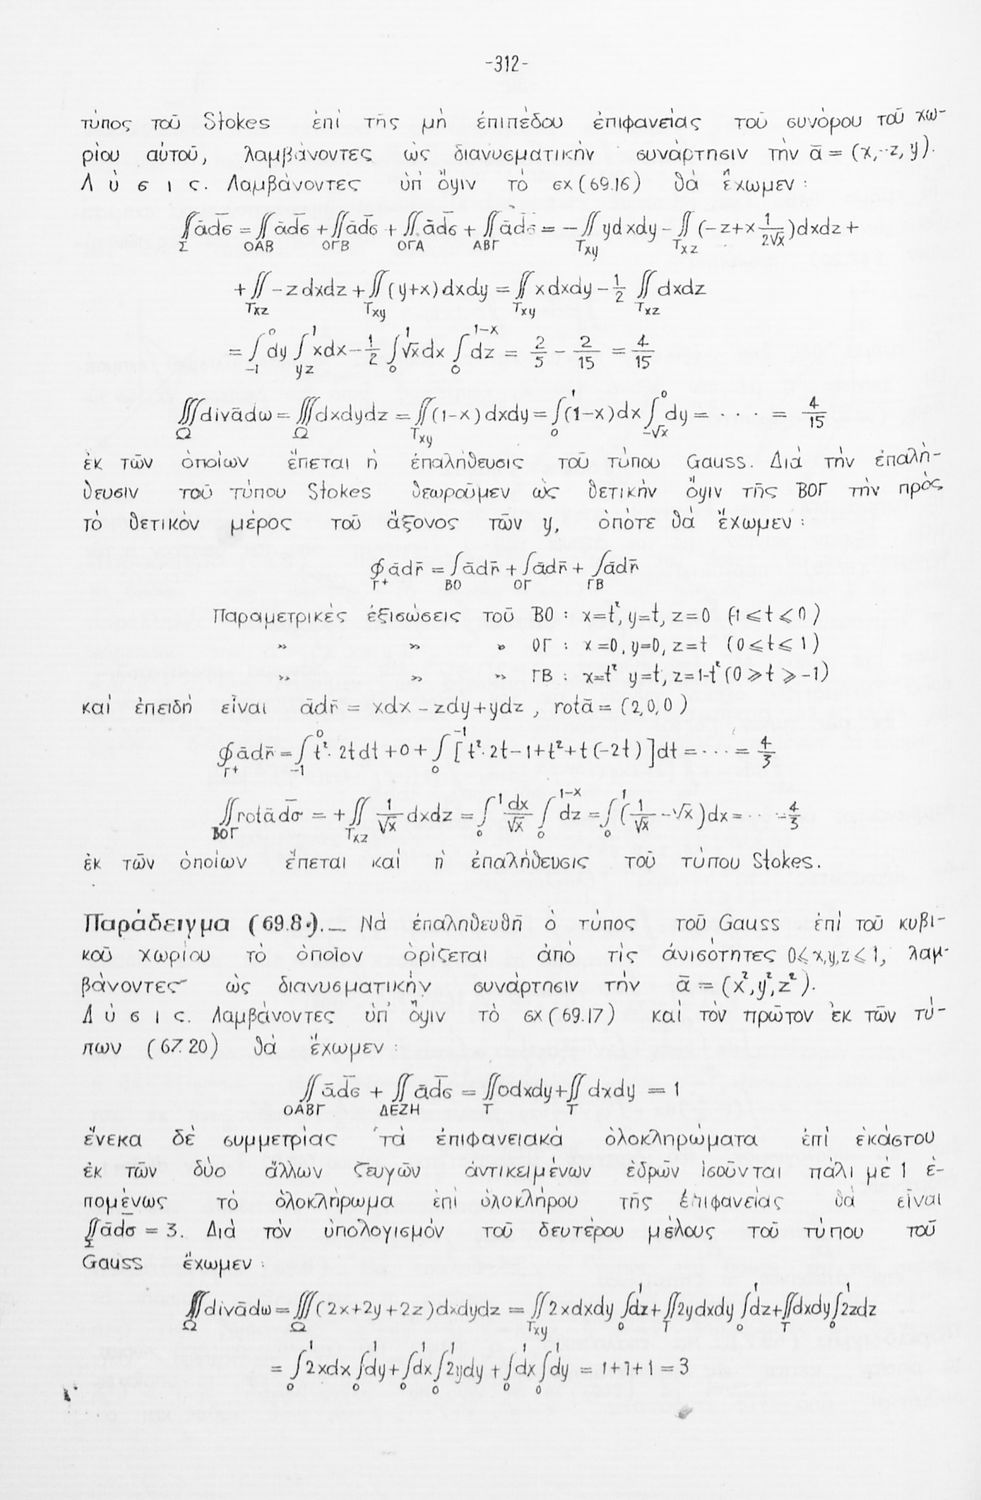 -312-
τύπος τοῦ Stokes ἐπί τῆς μή ἐπιπέδου ἐπιφανείας τοῦ συνόρου τοῦ χω-
ρίου αὐτοῦ, λαμβάνοντες ὡς διανυσματικήν συνάρτησιν τήν ā = (x, -z, y).
Λύσις. Λαμβάνοντες ὑπ' ὄψιν τό σχ(69.16) θά ἔχωμεν :
∬_Σ ā dσ̄ = ∬_ΟΑΒ ā dσ̄ + ∬_ΟΓΒ ā dσ̄ + ∬_ΟΓΑ ā dσ̄ + ∬_ΑΒΓ ā dσ̄ = -∬_Txy ydxdy - ∬_Txz (-z+x 1/(2√x))dxdz +
+ ∬_Txz -zdxdz + ∬_Txy (y+x)dxdy = ∬_Txy xdxdy - 1/2 ∬_Txz dxdz
= ∫_{-1}^0 dy ∫_{y²}^1 xdx - 1/2 ∫_0^1 √x dx ∫_0^{1-x} dz = 2/5 - 2/15 = 4/15
∭_Ω divā dω = ∭_Ω dxdydz = ∬_Txy (1-x)dxdy = ∫_0^1 (1-x)dx ∫_{-√x}^0 dy = · · · = 4/15
ἐκ τῶν ὁποίων ἕπεται ἡ ἐπαλήθευσις τοῦ τύπου Gauss. Διά τήν ἐπαλή-
θευσιν τοῦ τύπου Stokes θεωροῦμεν ὡς θετικήν ὄψιν τῆς ΒΟΓ τήν πρός
τό θετικόν μέρος τοῦ ἄξονος τῶν y, ὁπότε θά ἔχωμεν :
∮_Γ+ ā dr̄ = ∫_ΒΟ ā dr̄ + ∫_ΟΓ ā dr̄ + ∫_ΓΒ ā dr̄
Παραμετρικές ἐξισώσεις τοῦ ΒΟ : x=t², y=t, z=0 (-1⩽t⩽0)
» » » ΟΓ : x=0, y=0, z=t (0⩽t⩽1)
» » » ΓΒ : x=t² y=t, z=1-t² (0⩾t⩾-1)
καί ἐπειδή εἶναι ā dr̄ = xdx - zdy + ydz , rotā = (2,0,0)
∮_Γ+ ā dr̄ = ∫_{-1}^0 t²·2tdt + 0 + ∫_0^{-1} [t²·2t-1+t²+t(-2t)]dt = · · · = 4/3
∬_ΒΟΓ rotā dσ̄ = + ∬_Txz 1/√x dxdz = ∫_0^1 dx/√x ∫_0^{1-x} dz = ∫_0^1 (1/√x - √x)dx = · · · = 4/3
ἐκ τῶν ὁποίων ἕπεται καί ἡ ἐπαλήθευσις τοῦ τύπου Stokes.
Παράδειγμα (69.8.).— Νά ἐπαληθευθῆ ὁ τύπος τοῦ Gauss ἐπί τοῦ κυβι-
κοῦ χωρίου τό ὁποῖον ὁρίζεται ἀπό τίς ἀνισότητες 0⩽x,y,z⩽1, λαμ-
βάνοντες ὡς διανυσματικήν συνάρτησιν τήν ā = (x², y², z²).
Λύσις. Λαμβάνοντες ὑπ' ὄψιν τό σχ(69.17) καί τόν πρῶτον ἐκ τῶν τύ-
πων (67.20) θά ἔχωμεν :
∬_ΟΑΒΓ ā dσ̄ + ∬_ΔΕΖΗ ā dσ̄ = ∬_T 0dxdy + ∬_T dxdy = 1
ἕνεκα δέ συμμετρίας τά ἐπιφανειακά ὁλοκληρώματα ἐπί ἑκάστου
ἐκ τῶν δύο ἄλλων ζευγῶν ἀντικειμένων ἑδρῶν ἰσοῦνται πάλι μέ 1 ἑ-
πομένως τό ὁλοκλήρωμα ἐπί ὁλοκλήρου τῆς ἐπιφανείας θά εἶναι
∬_Σ ā dσ̄ = 3. Διά τόν ὑπολογισμόν τοῦ δευτέρου μέλους τοῦ τύπου τοῦ
Gauss ἔχωμεν :
∭_Ω divā dω = ∭_Ω (2x+2y+2z)dxdydz = ∬_Txy 2xdxdy ∫_0^1 dz + ∬_T 2ydxdy ∫_0^1 dz + ∬_T dxdy ∫_0^1 2zdz
= ∫_0^1 2xdx ∫_0^1 dy + ∫_0^1 dx ∫_0^1 2ydy + ∫_0^1 dx ∫_0^1 dy = 1+1+1 = 3